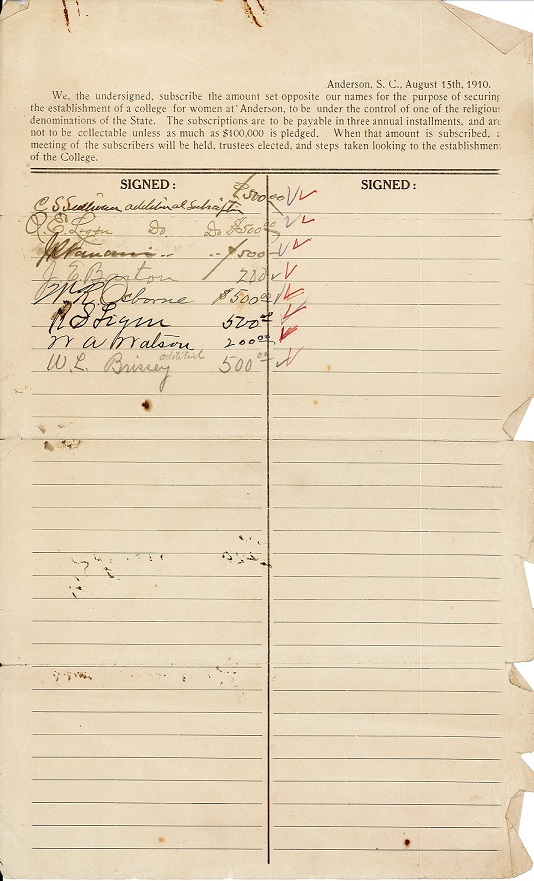 Anderson, S. C., August 15th, 1910.
We, the undersigned, subscribe the amount set opposite our names for the purpose of securing
the establishment of a college for women at Anderson, to be under the control of one of the religious
denominations of the State. The subscriptions are to be payable in three annual installments, and are
not to be collectable unless as much as $100,000 is pledged. When that amount is subscribed, a
meeting of the subscribers will be held, trustees elected, and steps taken looking to the establishment
of the College.
SIGNED: SIGNED:
C. S. Sullivan additional Subscription $500 00
Ligon Do Do $500 00
" " $500
J E Barton 200
Osborne $500 00
R S Ligon 500 00
W A Watson 200 00
W. L. Brissey additional 500 00